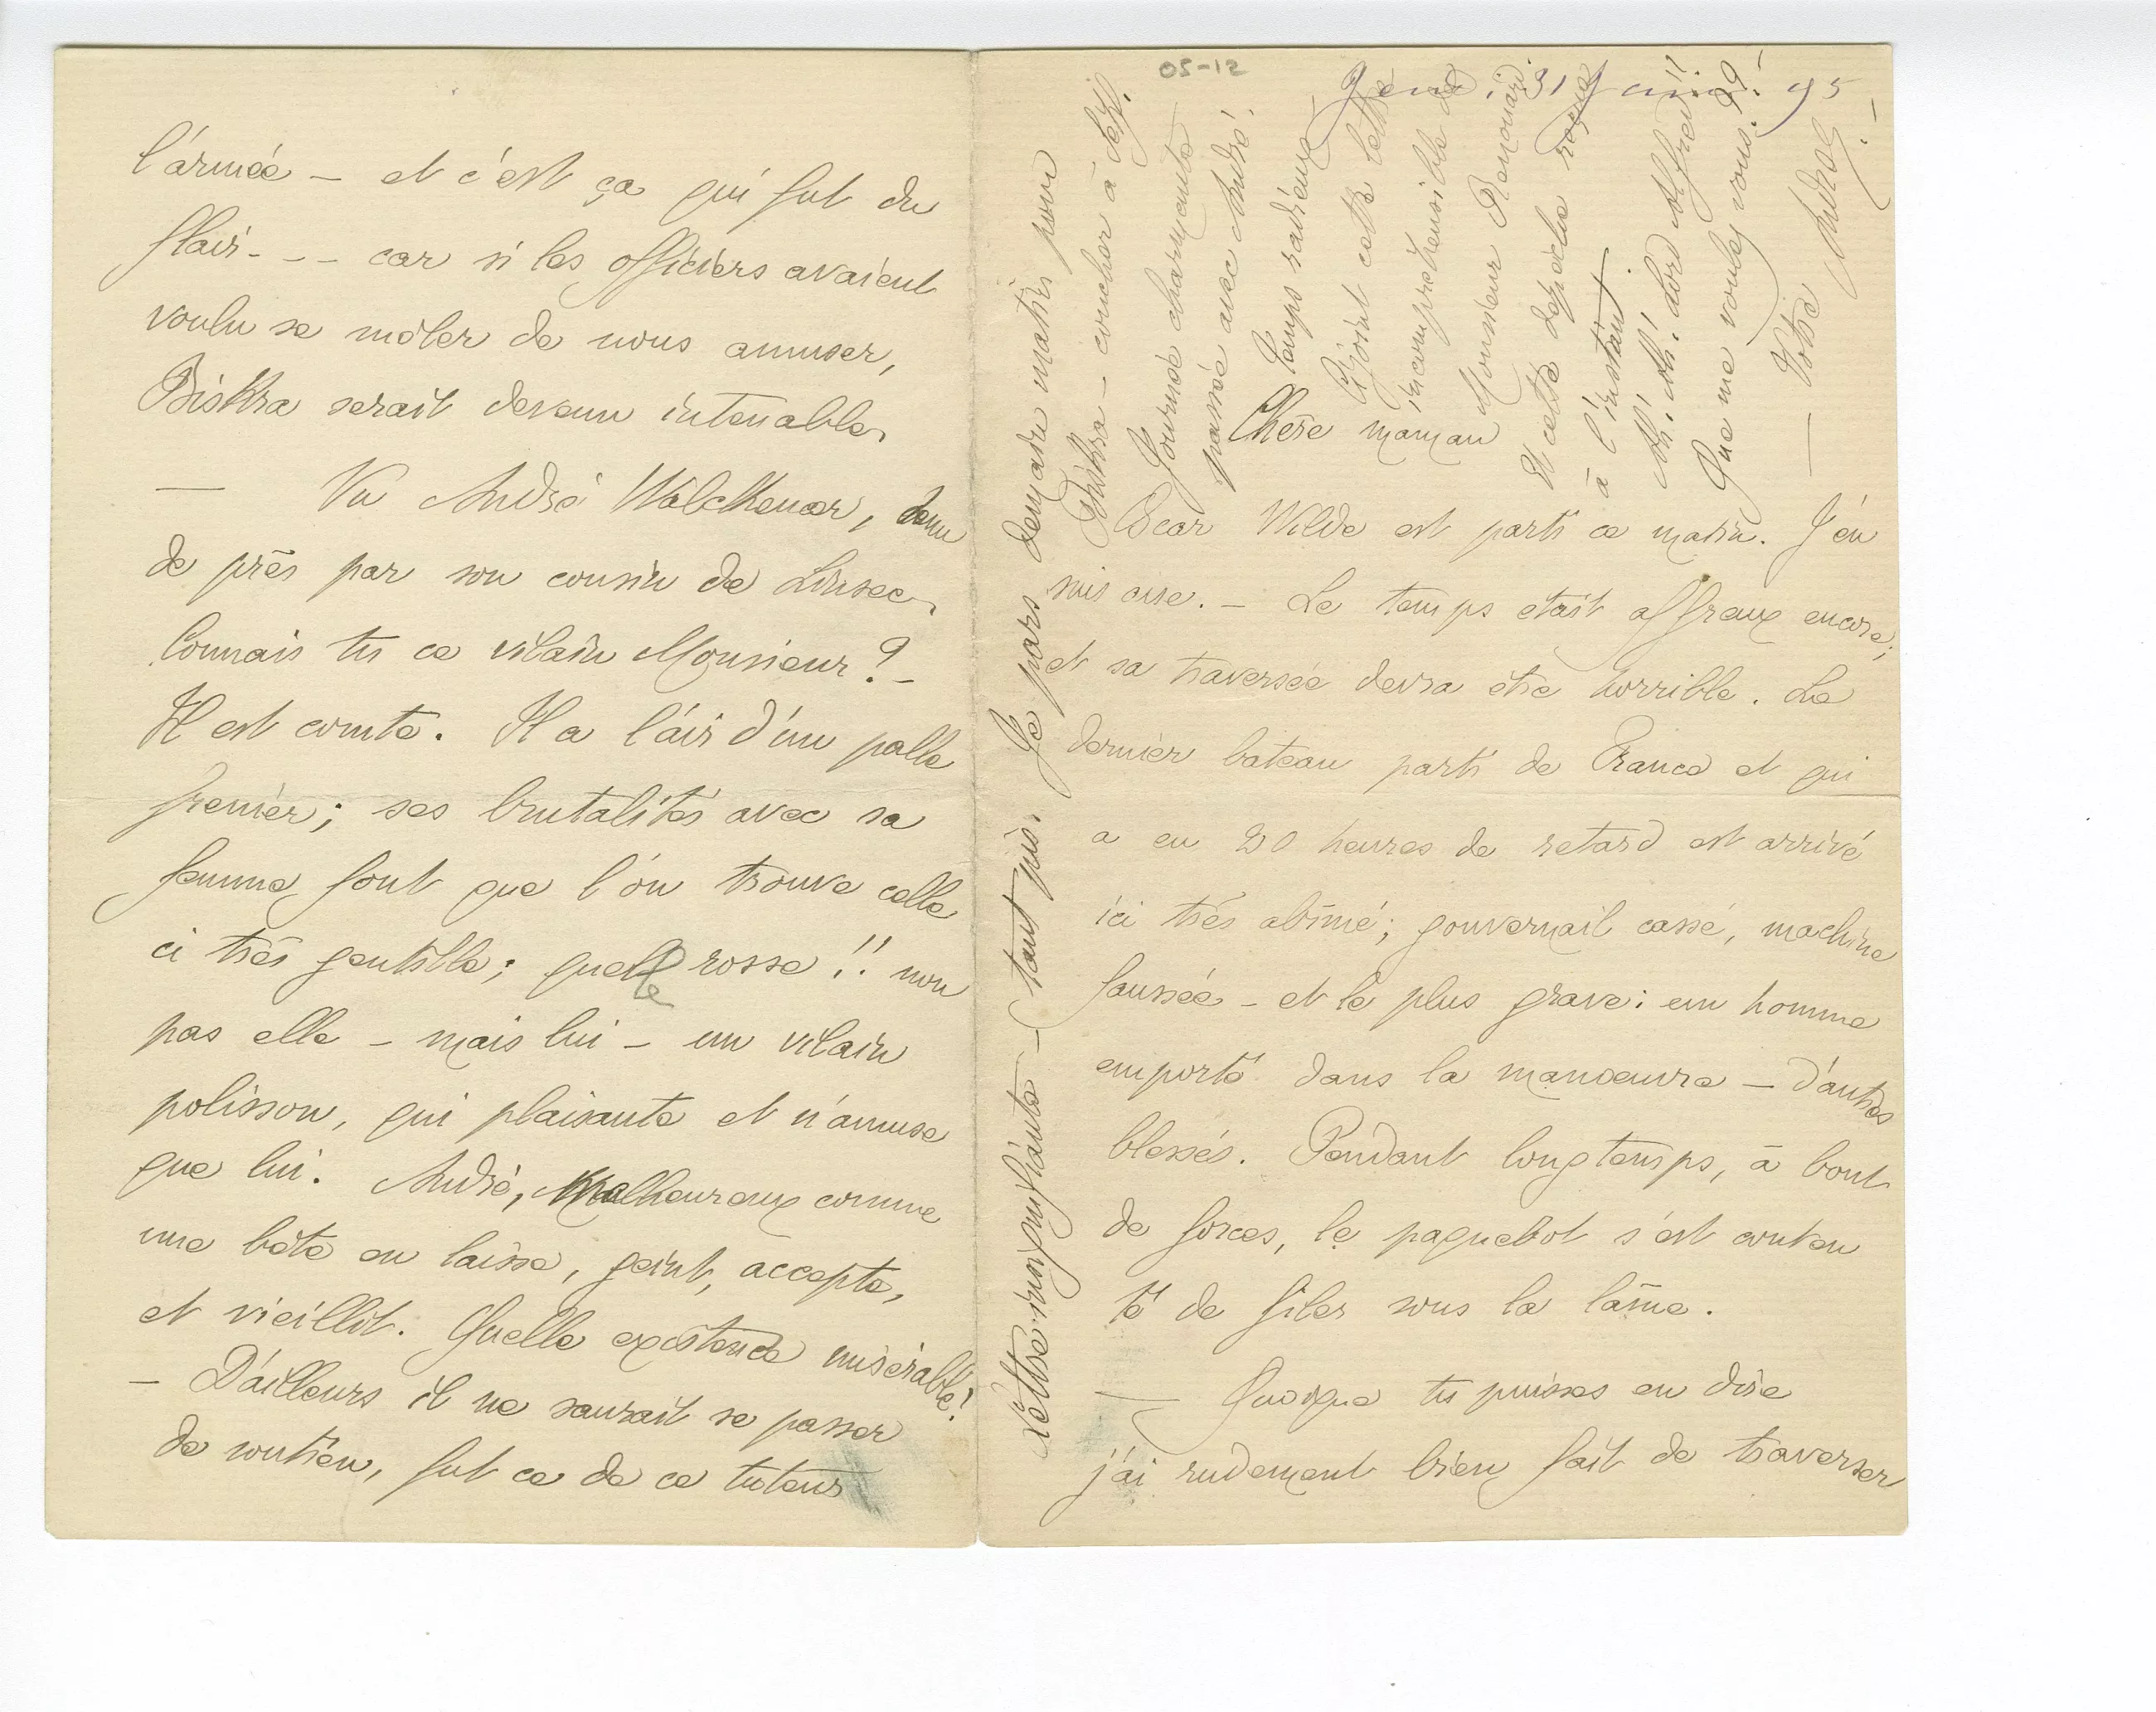 05-12
Jeudi. 31 Janvier 95
Chère maman
Oscar Wilde est parti ce matin. J'en
suis aise. – Le temps était affreux encore;
et sa traversée devra être horrible. Le
dernier bateau parti de France et qui
a eu 20 heures de retard est arrivé
ici très abîmé; gouvernail cassé, machine
faussée – et le plus grave: un homme
emporté dans la manœuvre – d'autres
blessés. Pendant longtemps, à bout
de forces, le paquebot s'est conten
té de filer sous la lame.
— Quoique tu puisses en dire
j'ai rudement bien fait de traverser
Lettre insignifiante – tant pis. Je pars demain matin pour
Biskra – coucher à Sétif.
Journée charmante
passée avec André.
Temps radieux –
Ci joint cette lettre
incompréhensible de
Monsieur Renouard.
Et cette dépêche reçue
à l'instant.
Ah! Ah! Lord Alfred!!
Que me voulez vous. ??–
— Votre André. –
l'armée – et c'est ça qui fut du
flair - - - car si les officiers avaient
voulu se mêler de nous amuser,
Biskra serait devenu intenable.
— Vu André Walckenaer, tenu
de près par son cousin de
Connais tu ce vilain Monsieur? –
Il est comte. Il a l'air d'un palle
frenier; ses brutalités avec sa
femme font que l'on trouve celle
ci très gentille; quelle rosse!! non
pas elle – mais lui – un vilain
polisson, qui plaisante et n'amuse
que lui. André, malheureux comme
une bête en laisse, geint, accepte,
et vieillit. Quelle existence misérable!
– D'ailleurs il ne saurait se passer
de soutien, fut ce de ce tuteur